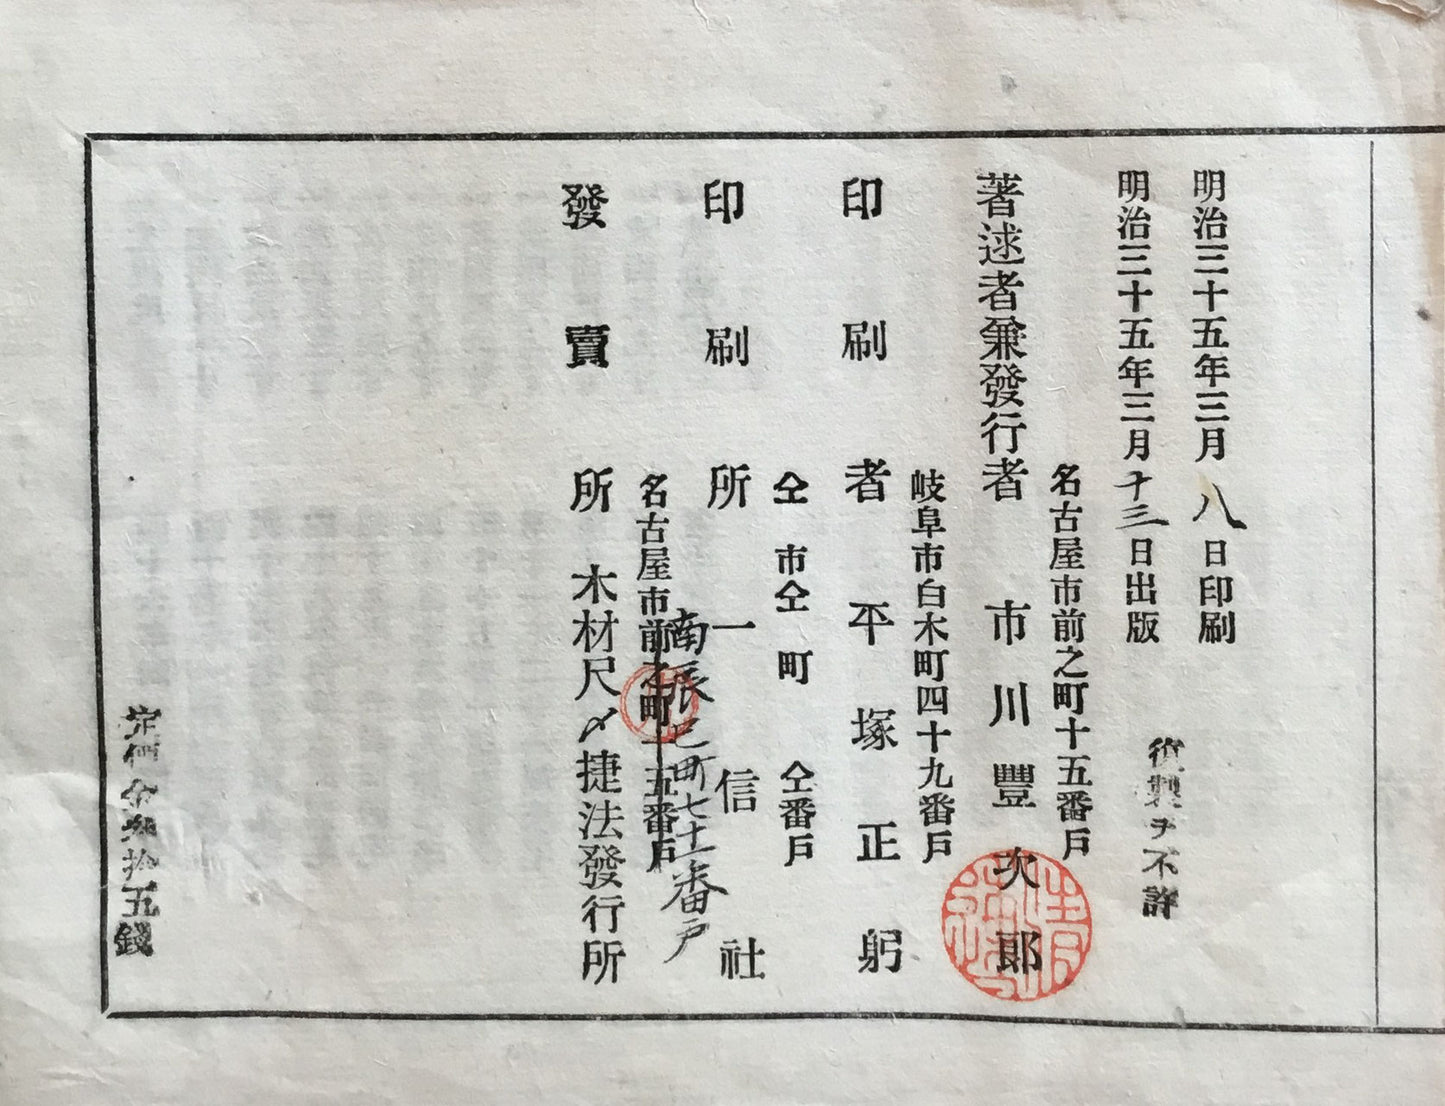 明治三十五年三月八日印刷
明治三十五年三月十三日出版
復製ヲ不許
名古屋市前之町十五番戸
著述者兼發行者 市川豐次郎
岐阜市白木町四十九番戸
印刷者 平塚正躬
仝市仝町仝番戸
印刷所 一信社
南辰巳町七十一番戸
名古屋市前之町十五番戸
發賣所 木材尺〆捷法發行所
定價金參拾五錢